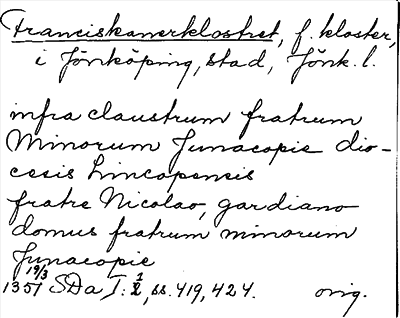 Franciskanerklostret, f. kloster,
i Jönköping, stad, Jönk. l.
infra claustrum fratrum
Minorum Junacopie dio-
cesis Lincopensis
fratre Nicolao, gardiano
domus fratrum minorum
Junacopie
1351 19/3 SDa I: 1/2, ss. 419, 424. orig.